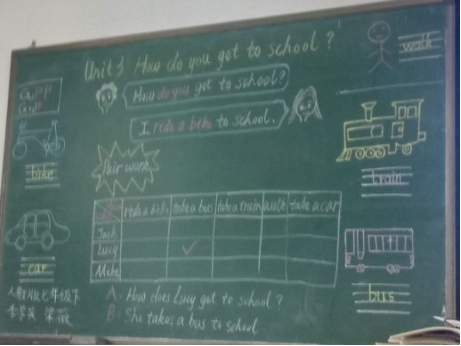 Unit 3 How do you get to school?
How do you get to school?
I ride a bike to school.
walk
bike
Pair work
train
ride a bike take a bus take a train walk take a car
Jack
Lucy ✓
Mike
car
bus
A: How does Lucy get to school?
B: She takes a bus to school
人教版七年级下